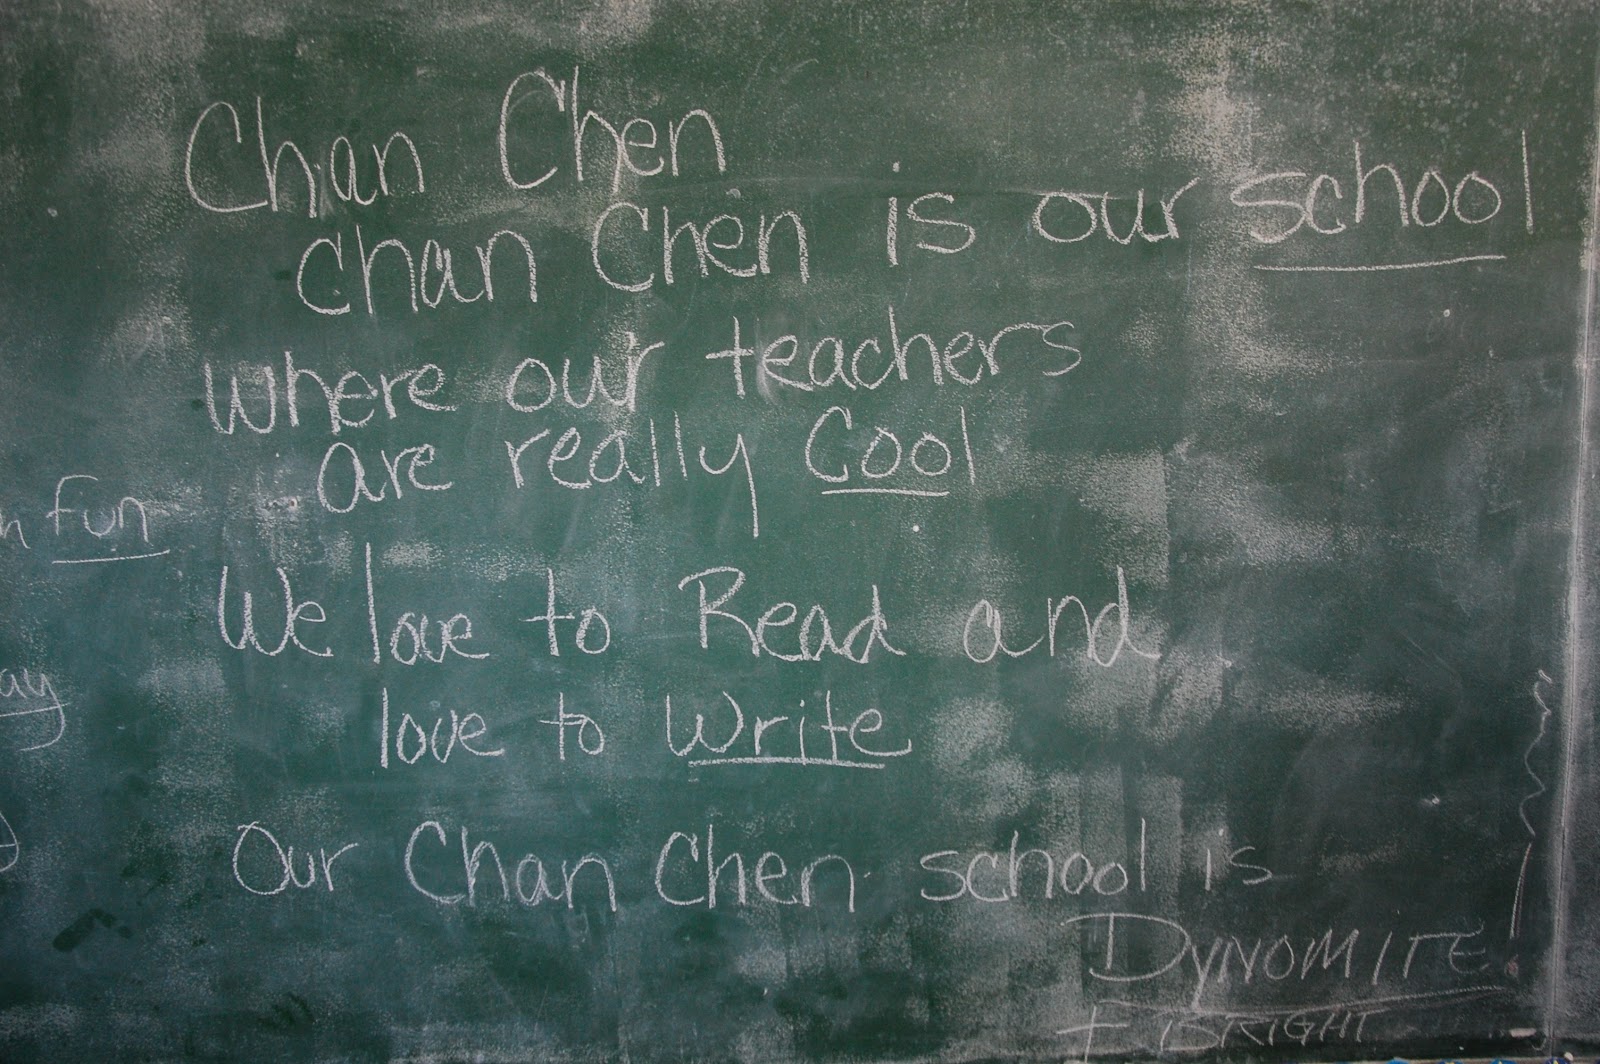 Chan Chen
Chan Chen is our school
where our teachers
are really Cool
fun
We love to Read and
love to Write
Our Chan Chen school is
DYNOMITE!
+ BRIGHT